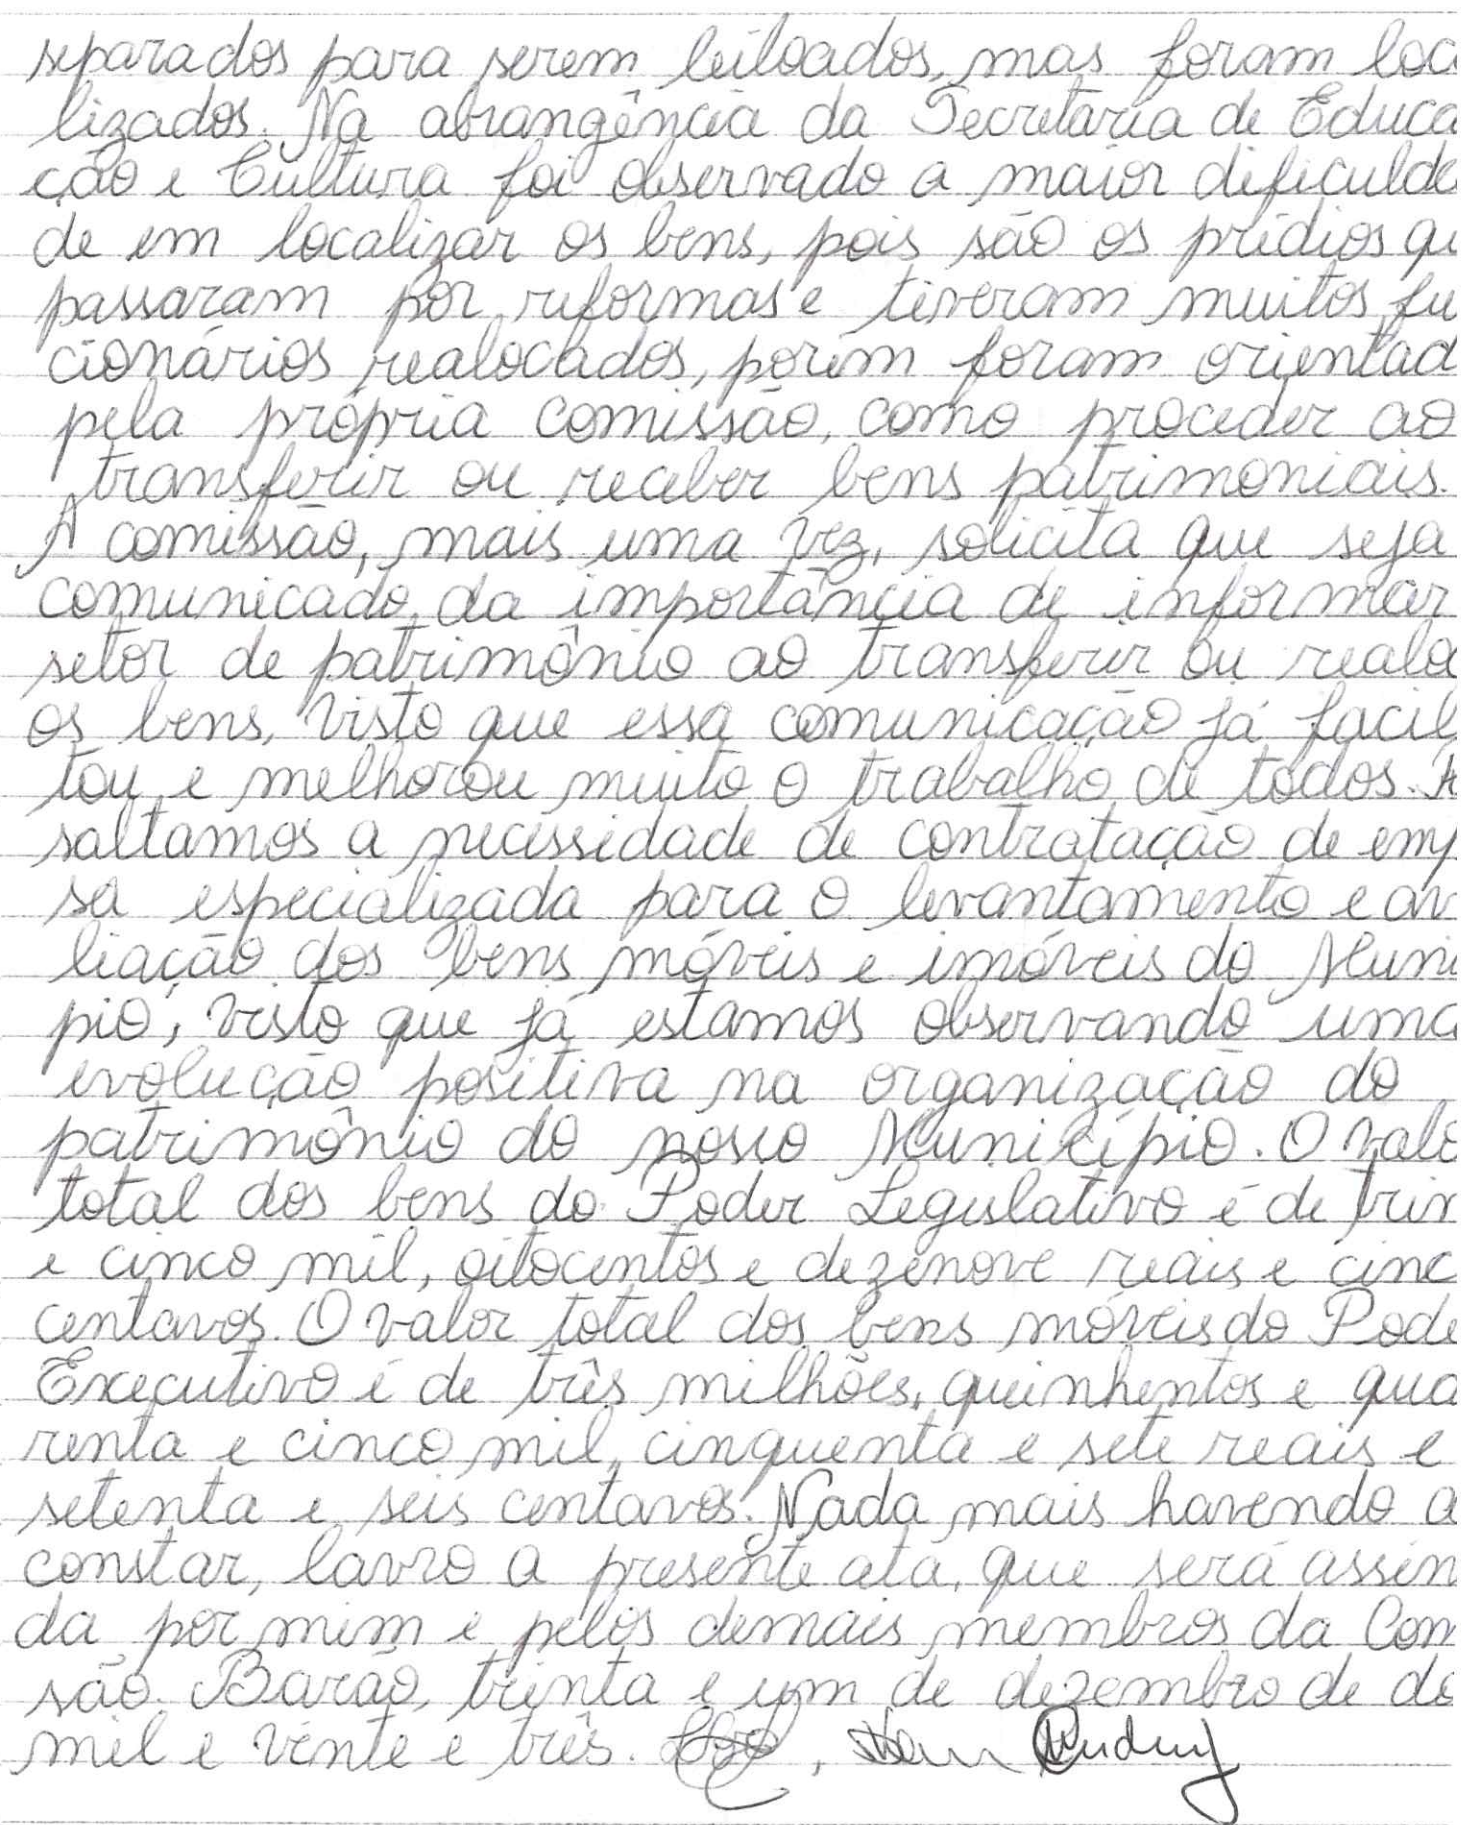 separados para serem leiloados, mas foram loca
lizados. Na abrangência da Secretaria de Educa
ção e Cultura foi observado a maior dificulda
de em localizar os bens, pois são os prédios qu
passaram por reformas e tiveram muitos fu
cionários realocados, porém foram orientad
pela própria comissão, como proceder ao
transferir ou receber bens patrimoniais.
A comissão, mais uma vez, solicita que seja
comunicado da importância de informar
setor de patrimônio ao transferir ou realo
os bens, visto que essa comunicação já facil
tou e melhorou muito o trabalho de todos. R
saltamos a necessidade de contratação de emp
sa especializada para o levantamento e av
liação dos bens móveis e imóveis do Muni
pio, visto que já estamos observando uma
evolução positiva na organização do
patrimônio do nosso Município. O valo
total dos bens do Poder Legislativo é de trin
e cinco mil, oitocentos e dezenove reais e cinc
centavos. O valor total dos bens móveis do Pode
Executivo é de três milhões, quinhentos e qua
renta e cinco mil, cinquenta e sete reais e
setenta e seis centavos. Nada mais havendo a
constar, lavro a presente ata, que será assin
da por mim e pelos demais membros da Com
são. Barão, trinta e um de dezembro de do
mil e vinte e três.